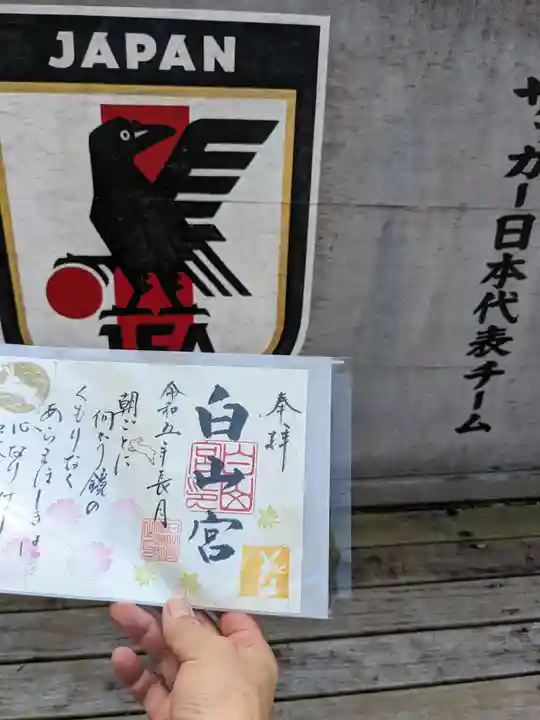 JAPAN
JFA
サッカー日本代表チーム
奉拝
白山宮
令和五年長月
朝ごとに
何かう鏡の
くもりなく
あらまほしきは
心なりけり